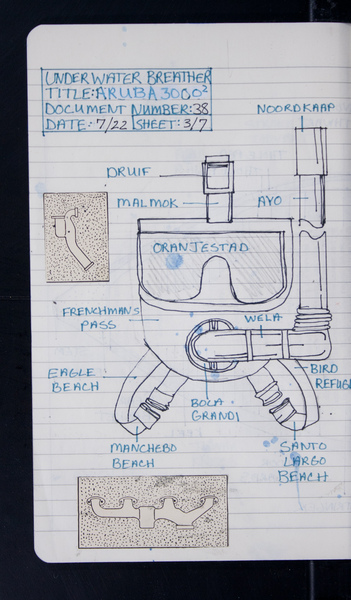 UNDERWATER BREATHER
TITLE: ARUBA 3000²
DOCUMENT NUMBER: 38
DATE: 7/22 SHEET: 3/7
NOORDKAAP
DRUIF
MALMOK
AYO
ORANJESTAD
FRENCHMANS
PASS
WELA
EAGLE
BEACH
BIRD
REFUGE
BOCA
GRANDI
MANCHEBO
BEACH
SANTO
LARGO
BEACH